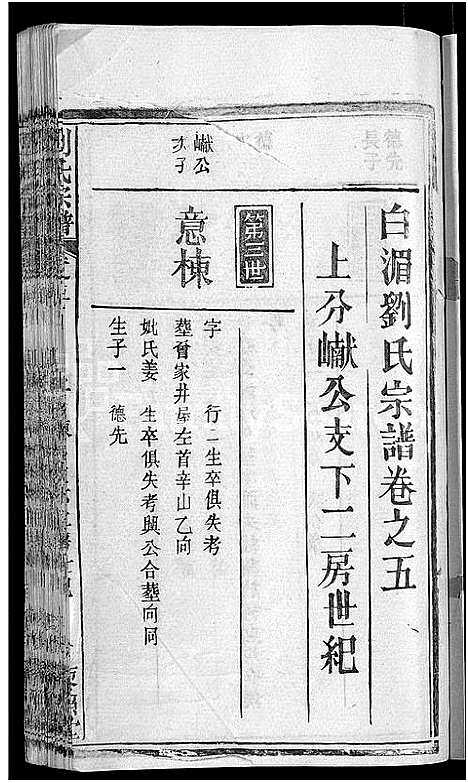 白湄劉氏宗譜卷之五
上分巘公支下二房世紀
第三世
巘公
次子
意棟
字 行二生卒俱失考
塟晉家井屋左首辛山乙向
妣氏姜 生卒俱失考與公合塟向同
生子一 德先
劉氏宗譜